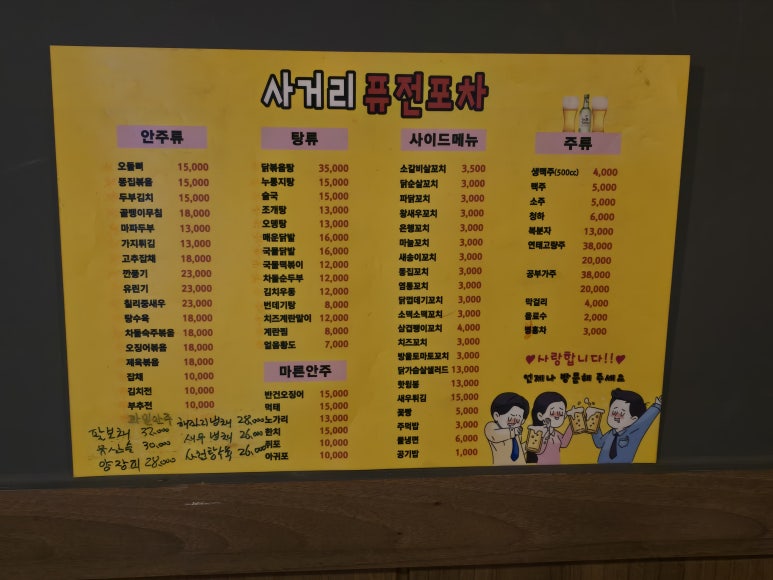 사거리 퓨전포차
안주류
오돌뼈 15,000
똥집볶음 15,000
두부김치 15,000
골뱅이무침 18,000
마파두부 13,000
가지튀김 13,000
고추잡채 18,000
깐풍기 23,000
유린기 23,000
칠리중새우 23,000
탕수육 18,000
차돌숙주볶음 18,000
오징어볶음 18,000
제육볶음 18,000
잡채 10,000
김치전 10,000
부추전 10,000
과일안주
팔보채 32,000
유산슬 30,000
양장피 28,000
해파리냉채 28,000
새우냉채 26,000
사천탕수육 26,000
탕류
닭볶음탕 35,000
누룽지탕 15,000
술국 15,000
조개탕 13,000
오뎅탕 13,000
매운닭발 16,000
국물닭발 16,000
국물떡볶이 12,000
차돌순두부 12,000
김치우동 12,000
번데기탕 8,000
치즈계란말이 12,000
계란찜 8,000
얼음황도 7,000
마른안주
반건오징어 15,000
먹태 15,000
노가리 13,000
한치 15,000
쥐포 10,000
아귀포 10,000
사이드메뉴
소갈비살꼬치 3,500
닭순살꼬치 3,000
파닭꼬치 3,000
왕새우꼬치 3,000
은행꼬치 3,000
마늘꼬치 3,000
새송이꼬치 3,000
똥집꼬치 3,000
염통꼬치 3,000
닭껍데기꼬치 3,000
소떡소떡꼬치 3,000
삼겹팽이꼬치 4,000
치즈꼬치 3,000
방울토마토꼬치 3,000
닭가슴살샐러드 13,000
핫윙봉 13,000
새우튀김 15,000
꽃빵 5,000
주먹밥 3,000
물냉면 6,000
공기밥 1,000
주류
생맥주(500cc) 4,000
맥주 5,000
소주 5,000
청하 6,000
복분자 13,000
연태고량주 38,000
20,000
공부가주 38,000
20,000
막걸리 4,000
음료수 2,000
명홍차 3,000
♥사랑합니다!!♥
언제나 빵긋해 주세요